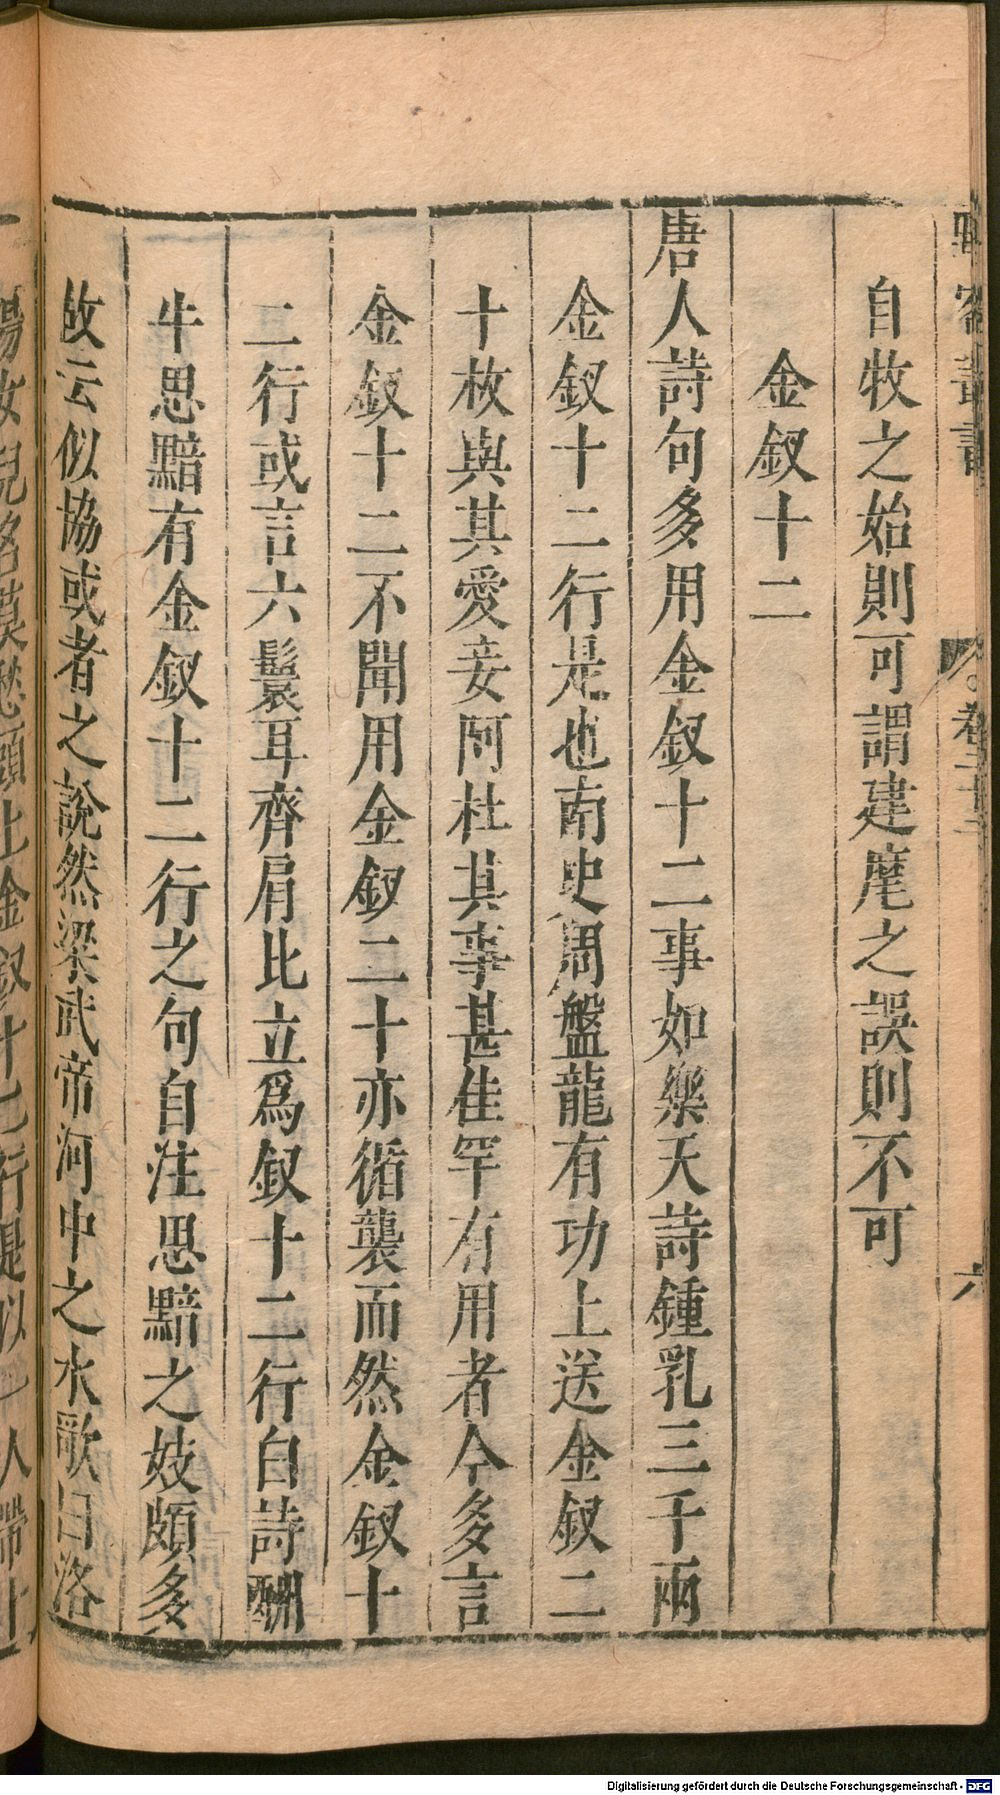 自牧之始則可謂建麾之誤則不可
金釵十二
唐人詩句多用金釵十二事如樂天詩鍾乳三千兩
金釵十二行是也南史周盤龍有功上送金釵二
十枚與其愛妾阿杜其事甚佳罕有用者今多言
金釵十二不聞用金釵二十亦循襲而然金釵十
二行或言六鬟耳齊肩比立為釵十二行白詩酬
牛思黯有金釵十二行之句自注思黯之妓頗多
故云似協或者之說然梁武帝河中之水歌曰洛
卷二十二
六
Digitalisierung gefördert durch die Deutsche Forschungsgemeinschaft - DFG